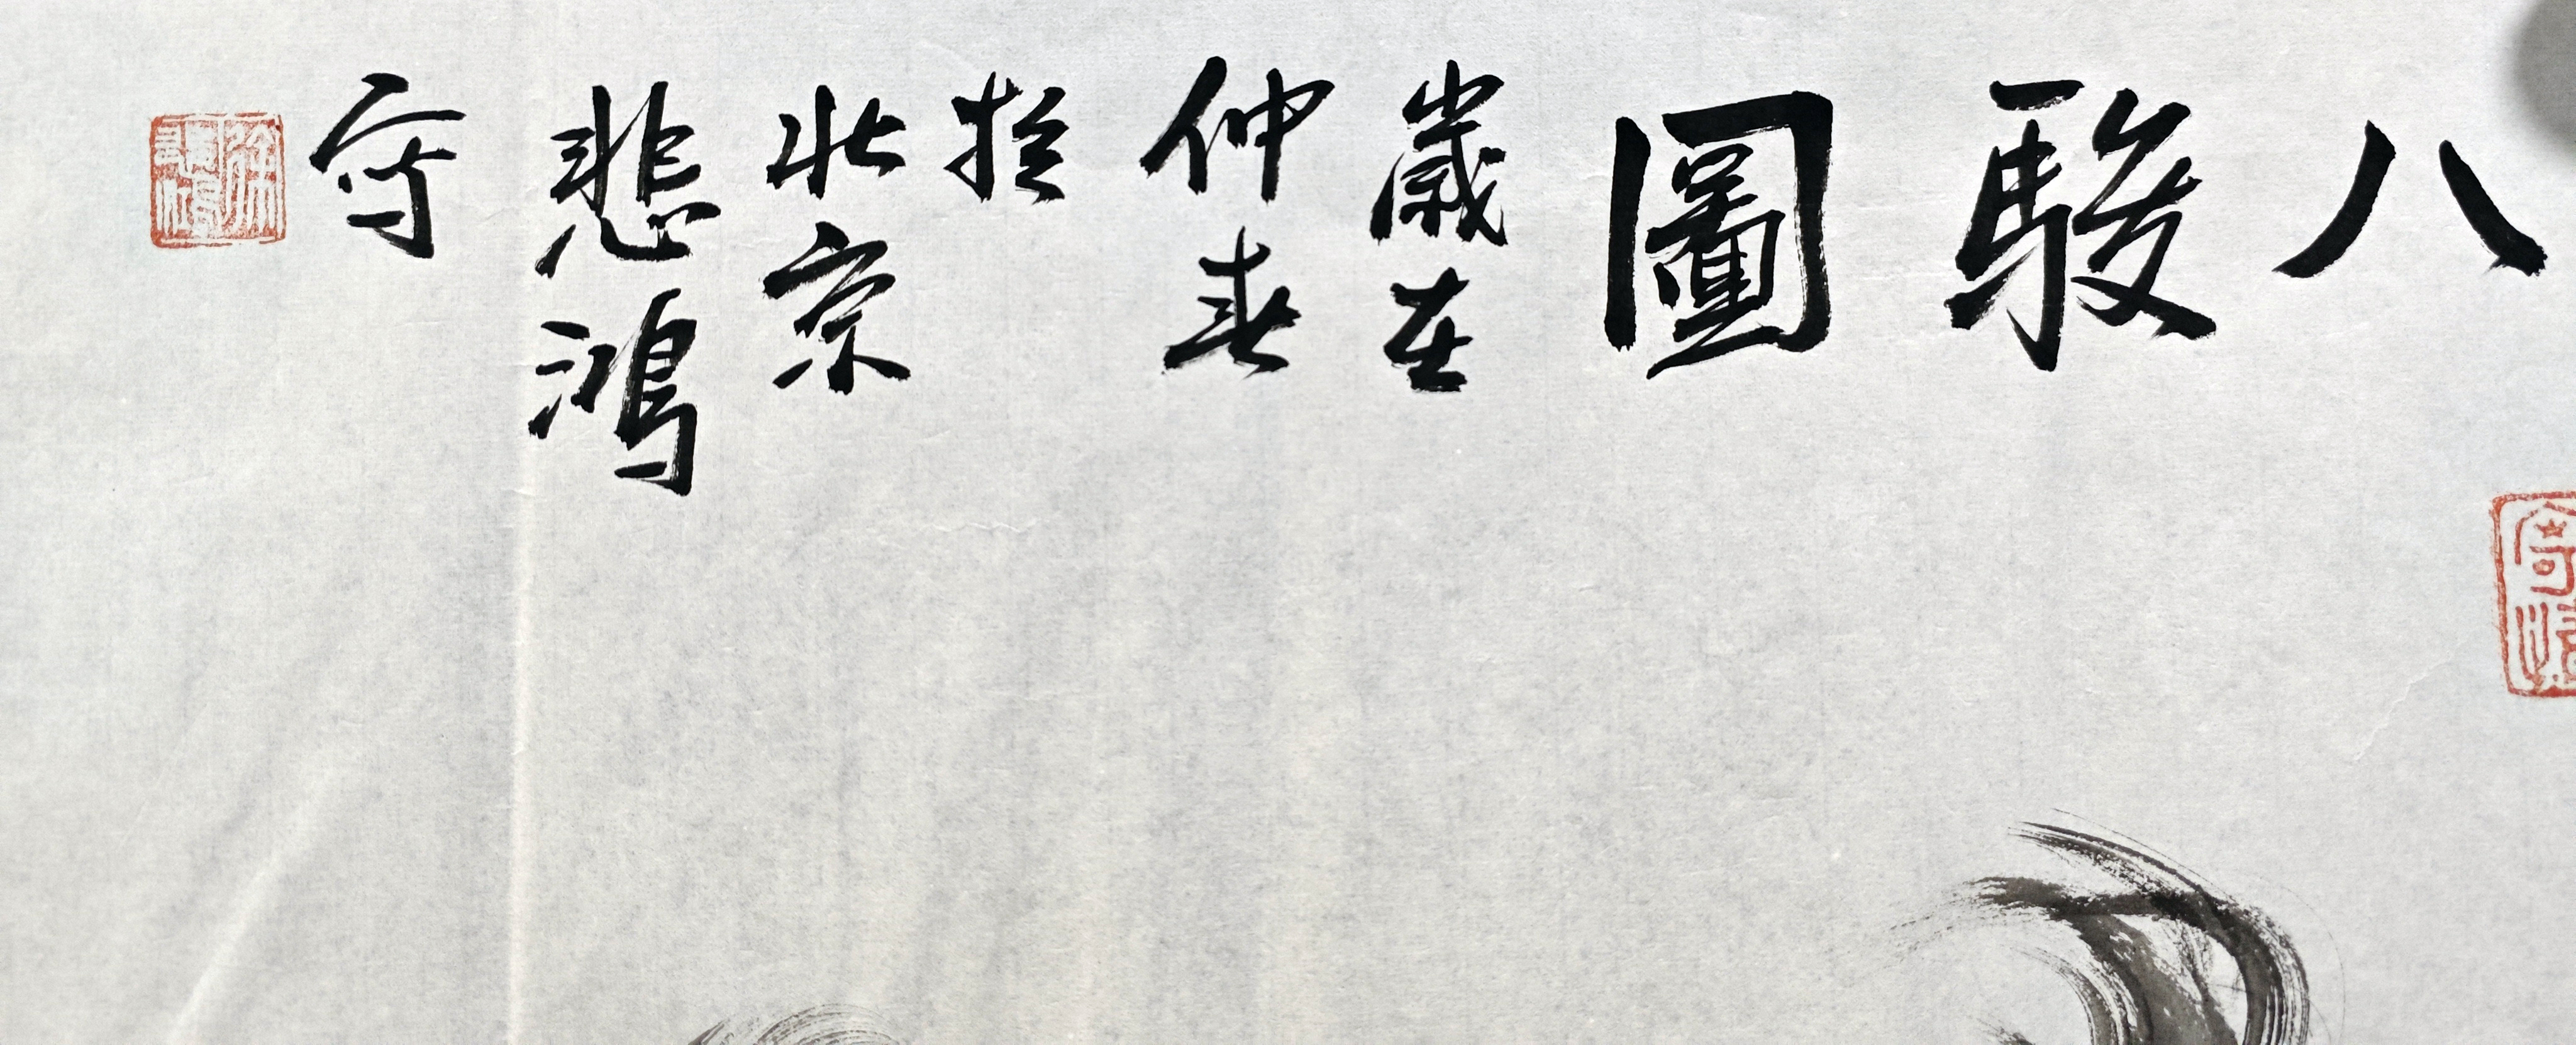 八
駿
圖
歲在
仲春
於
北京
悲鴻
寫
徐悲鴻